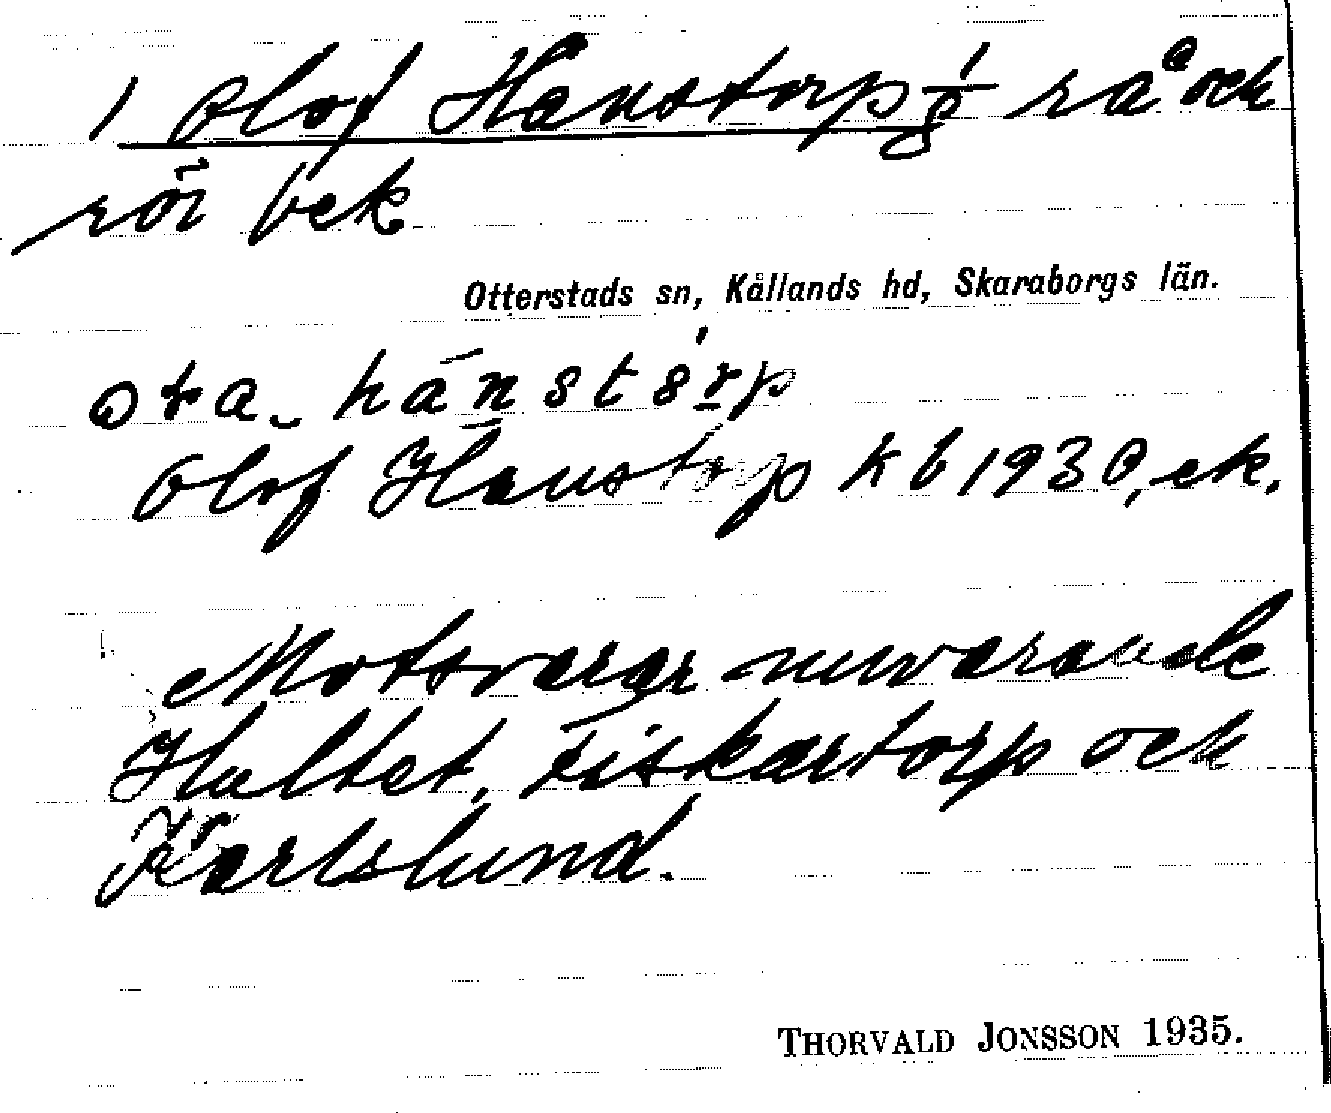 1 Olof Hanstorp 1/8 rå och
rör bek
Otterstads sn, Kållands hd, Skaraborgs län.
Olof Hanstorp k b 1930, ek.
Motsvarar nuvarande
Hultet, Fiskartorp och
Karlslund.
THORVALD JONSSON 1935.